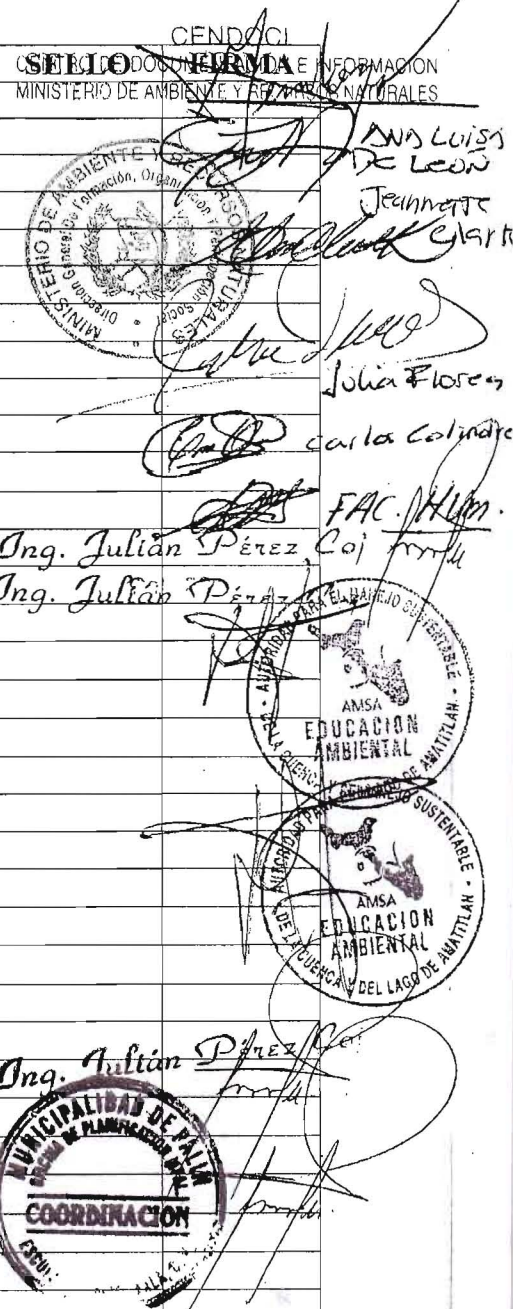 CENDOCI
SELLO FIRMA
CENTRO DE DOCUMENTACION E INFORMACION
MINISTERIO DE AMBIENTE Y RECURSOS NATURALES
ANA LUISA
DE LEON
MINISTERIO DE AMBIENTE Y RECURSOS NATURALES
Dirección General de Formación, Organización y Participación Social
Jeannette
Julia Flores
Carlos Colindre
FAC. Hum.
Ing. Julián Pérez Coj
Ing. Julián Pérez
AUTORIDAD PARA EL MANEJO SUSTENTABLE
DE LA CUENCA Y DEL LAGO DE AMATITLAN
AMSA
EDUCACION
AMBIENTAL
AUTORIDAD PARA EL MANEJO SUSTENTABLE
DE LA CUENCA Y DEL LAGO DE AMATITLAN
AMSA
EDUCACION
AMBIENTAL
Ing. Julián Pérez Coj
MUNICIPALIDAD DE PALIN
OFICINA DE PLANIFICACION
COORDINACION